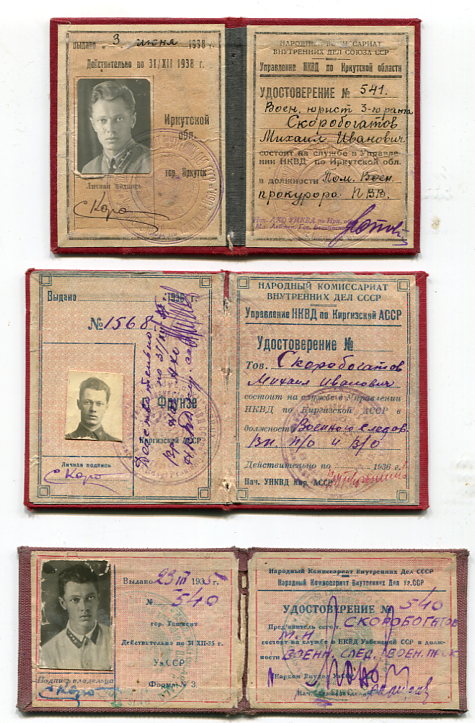 Выдано 3 июня 1938 г.
Действительно по 31/XII 1938 г.
Иркутской
обл.
гор. Иркутск
Личная подпись
Скоро
НАРОДНЫЙ КОМИССАРИАТ
ВНУТРЕННИХ ДЕЛ СОЮЗА ССР
Управление НКВД по Иркутской области
УДОСТОВЕРЕНИЕ № 541.
Воен. юрист 3-го ранга
Скоробогатов
Михаил Иванович
состоит на службе в Управле-
нии НКВД по Иркутской обл.
в должности Пом. Воен.
прокурора П.В.В.
Выдано 1936 г.
№ 1568
Действительно
по 31/XII
Фрунзе
Киргизской АССР
Личная подпись
Скоро
НАРОДНЫЙ КОМИССАРИАТ
ВНУТРЕННИХ ДЕЛ СССР
Управление НКВД по Киргизской АССР
Удостоверение №
Тов. Скоробогатов
Михаил Иванович
состоит на службе в Управлении
НКВД по Киргизской АССР в
должности Военного следов.
Вп. п/о и в/о
Действительно по 1936 г.
Нач. УНКВД Кир. АССР
Выдано 23 III 1935
№ 540
гор. Ташкент
Действительно по 31 XII-35 г.
УзССР
Форма № 3
Подпись владельца
Скоро
Народный Комиссариат Внутренних Дел СССР
Народный Комиссариат Внутренних Дел Уз.ССР
УДОСТОВЕРЕНИЕ № 540
Предъявитель сего т. СКОРОБОГАТОВ
М.И
состоит на службе в НКВД Узбекской ССР в долж-
ности ВОЕНН. СЛЕД. ВОЕН. ПР-К
Нарком Внутрдел